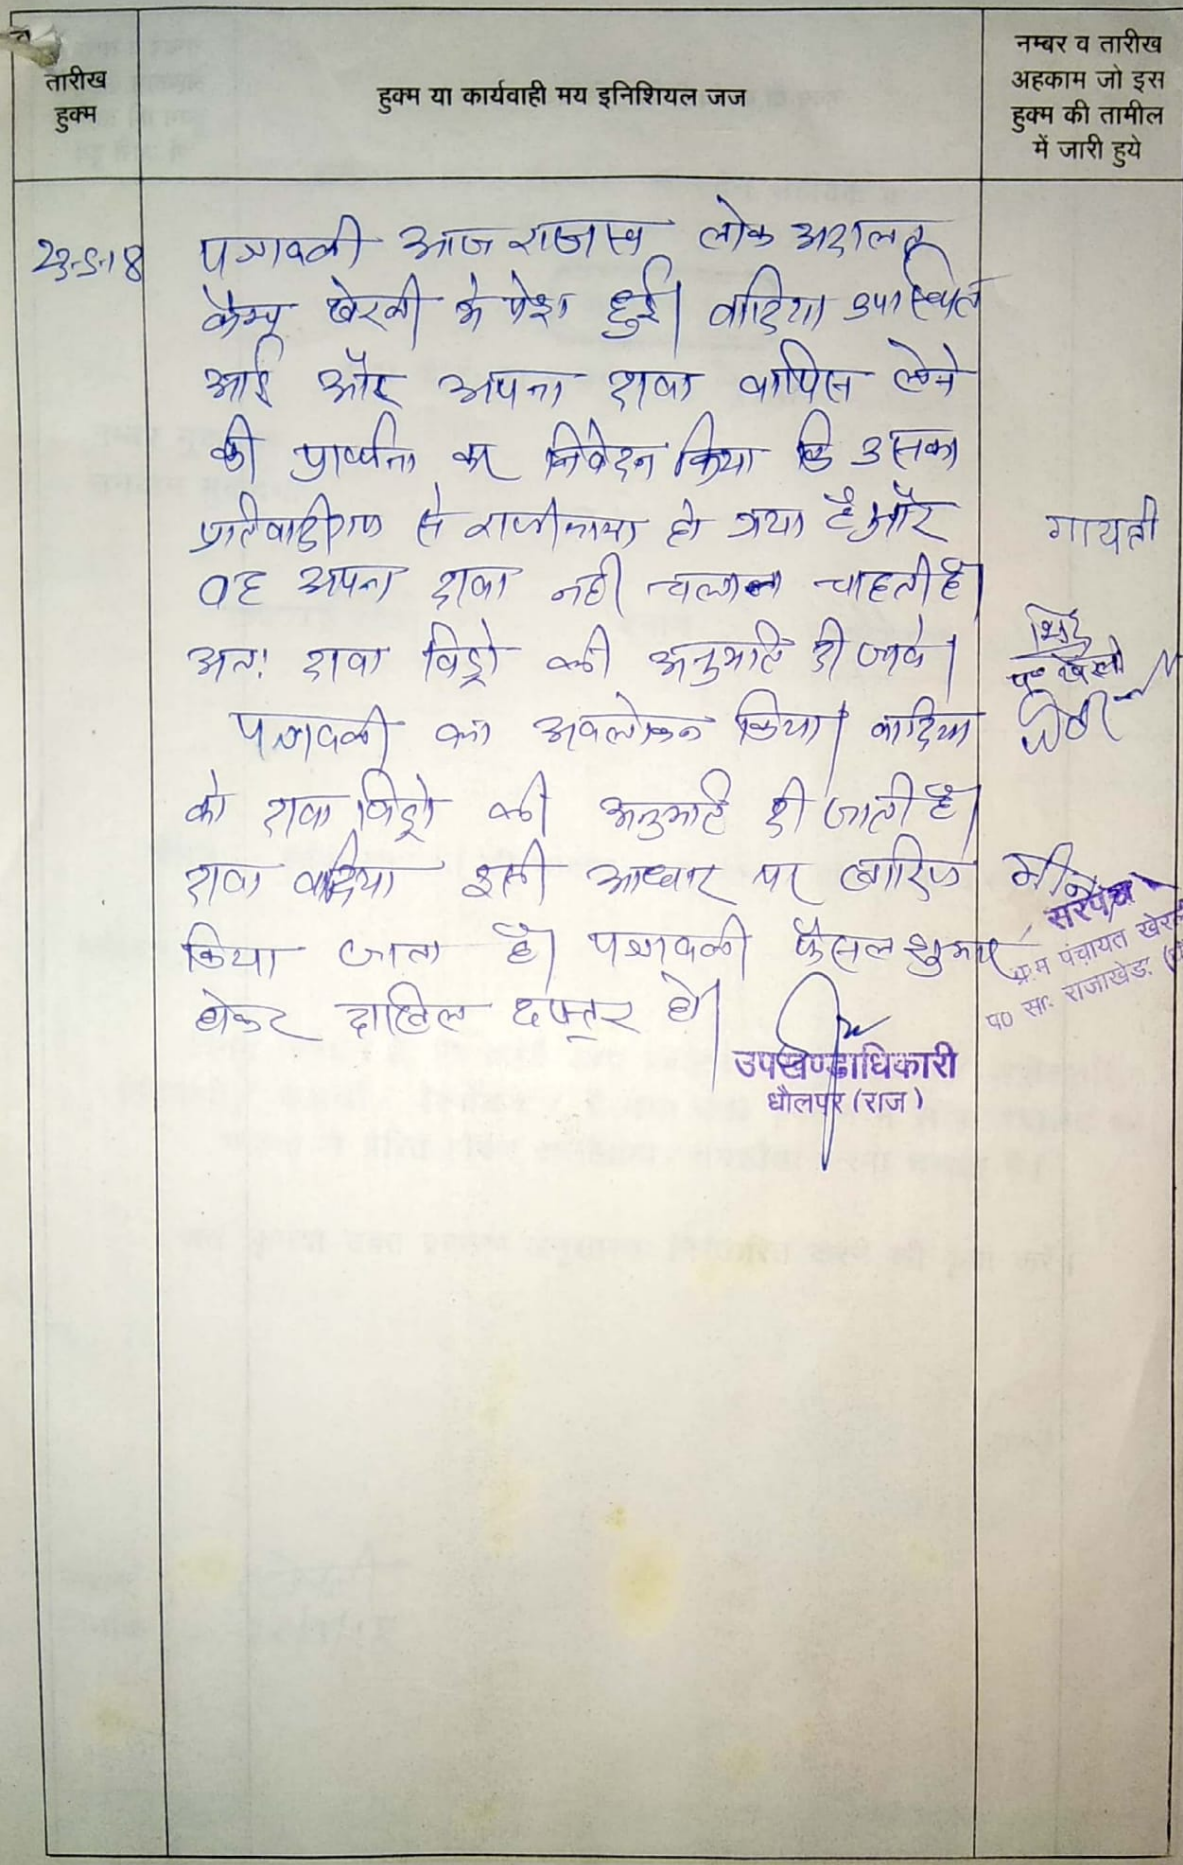 तारीख
हुक्म
हुक्म या कार्यवाही मय इनिशियल जज
नम्बर व तारीख
अहकाम जो इस
हुक्म की तामील
में जारी हुये
23-5-18
पत्रावली आज राजस्व लोक अदालत
कैम्प खेरली मे पेश हुई। वादिया उपस्थित
आई और अपना दावा वापिस लेने
की प्रार्थना कर निवेदन किया कि उसका
प्रतिवादीगण से राजीनामा हो गया है और
वह अपना दावा नही चलाना चाहती है।
अतः दावा विड्रो की अनुमति दी जावे।
पत्रावली का अवलोकन किया। वादिया
को दावा विड्रो की अनुमति दी जाती है।
दावा वादिया इसी आधार पर खारिज
किया जाता है। पत्रावली फैसल शुमार
होकर दाखिल दफ्तर हो।
उपखण्डाधिकारी
धौलपुर (राज)
गायत्री
सरपंच
ग्राम पंचायत
पं० स० राजाखेड़ा